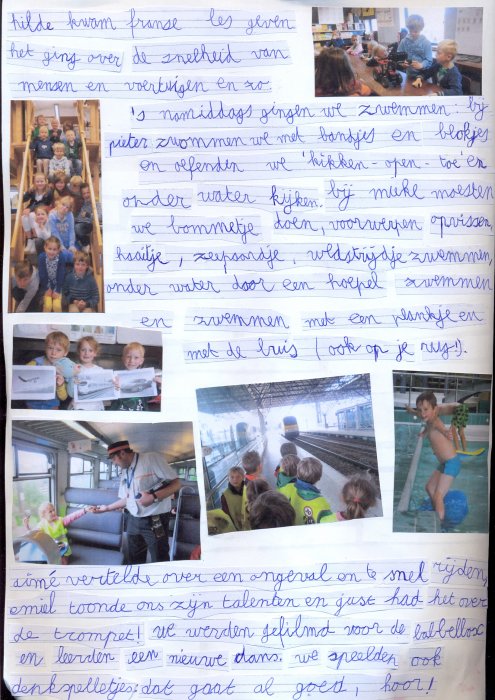 hilde kwam franse les geven
het ging over de snelheid van
mensen en voertuigen en zo.
's namiddags gingen we zwemmen: bij
pieter zwommen we met bandjes en blokjes
en oefenden we 'kikken-open-toe' en
onder water kijken. bij mieke moesten
we bommetje doen, voorwerpen opvissen,
haaitje, zeepaardje, wedstrijdje zwemmen,
onder water door een hoepel zwemmen
en zwemmen met een plankje en
met de buis (ook op je rug!).
aimé vertelde over een ongeval en te snel rijden,
emiel toonde ons zijn talenten en just had het over
de trompet! we werden gefilmd voor de babbelbox
en leerden een nieuwe dans. we speelden ook
denkspelletjes: dat gaat al goed, hoor!